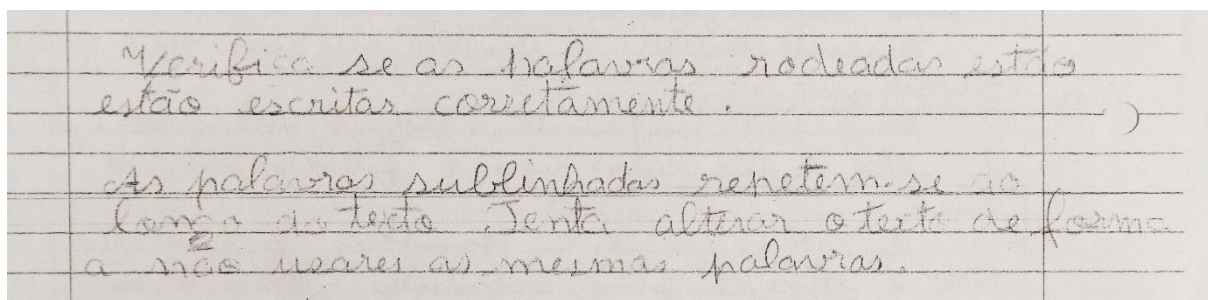 Verifica se as palavras rodeadas estão
estão escritas corretamente.
As palavras sublinhadas repetem-se ao
longo do texto. Tenta alterar o texto de forma
a não usares as mesmas palavras.